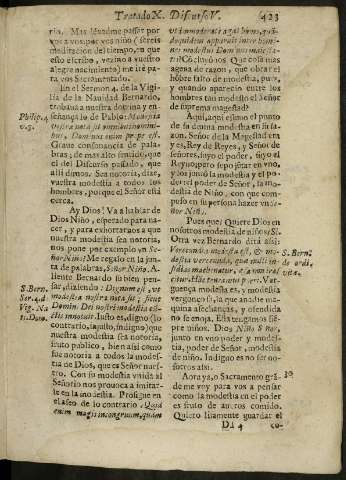 Tratado X. Discurso V. 423
rio. Mas seuadme passar por
vos a vos: por vos niño (sereis
meditacion del tiempo, en que
esto escribo, vezino a vuestro
alegre nacimiento) me irè pa-
ra vos Sacramentado.
En el Sermon 4. de la Vigi-
lia de la Nauidad Bernardo,
trobaua a nuestra dotrina y en-
señança lo de Pablo: Modestia
vestra nota sit omnibus homini-
bus, Dominus enim prope est.
Graue consonancia de pala-
bras, de mas alto sentido, que
el del Discurso passado, que
assi dimos. Sea notoria, dize,
vuestra modestia a todos los
hombres, porque el Señor està
cerca.
Ay Dios! Va a hablar de
Dios Niño, esperado para na-
cer, y para exhortarnos a que
nuestra modestia sea notoria,
nos pone por exemplo vn Se-
ñor Niño! Me regalo en la jun-
ta de palabras, Señor, Niño. A-
liente Bernardo su bien pen-
sar, diziendo: Dignum est, vt
modestia nostra nota sit; sicut
Domini Dei nostri modestia cu-
ctis innotuit. Iusto es, digno (lo
contrario, injusto, indigno) que
nuestra modestia sea notoria,
fruto publico, bien assi como
fue notoria a todos la modes-
tia de Dios, que es Señor nues-
tro. Con su modestia vnida al
Señorio nos prouoca a imitar-
le en la modestia. Prosigue en
el aseo de lo contrario. Quid
enim magis incongruum, quàm
Philip. 4.
v. 5.
S. Bern.
Ser. 4. de
Vig. Na-
ti. Dom.
vt immoderatè agat homo, quã-
doquidem apparuit inter homi-
nes modestus Dominus maiesta-
tis? Concluyòlos. Que cosa mas
agena de razon, que obrar el
hombre falto de modestia, pura,
y quando aparecio entre los
hombres tan modesto el Señor
de suprema magestad?
Aqui, aqui estamo el punto
de la divina modestia en su sa-
zon. Señor de la Magestad era
y es, Rey de Reyes, y Señor de
señores, suyo el poder, suyo el
Reyno: pero supo estar en vno,
y los juntò la modestia y el po-
der, el poder de Señor, la mo-
destia de Niño, con que com-
puso en su persona hazer vn Se-
ñor Niño.
Pues que? Quiere Dios en
nosotros modestia de niños? Si.
Otra vez Bernardo dirà assi:
Verecunda modestia est, & mo-
desta verecundia, que nulli in-
sidias machinatur, & in non irre-
Vergonçosa
guença modesta es, y modestia
vergonçosa, la que a nadie ma-
quina assechanças, y ofendida
no se enoja. Esta tengamos siẽ-
pre niños. Dios Niño Señor,
junto en vno poder y modes-
tia, poder de Señor, modestia
de niño. Indigno es no ser no-
sotros assi.
Aora ya, o Sacramento grã-
de me voy para vos a pensar
como esta modestia en el poder
es fruto de autros comido.
Quiero fixamente guardar el
S. Bern.
de ordi.
vitæ.
30
Dd 4 co-